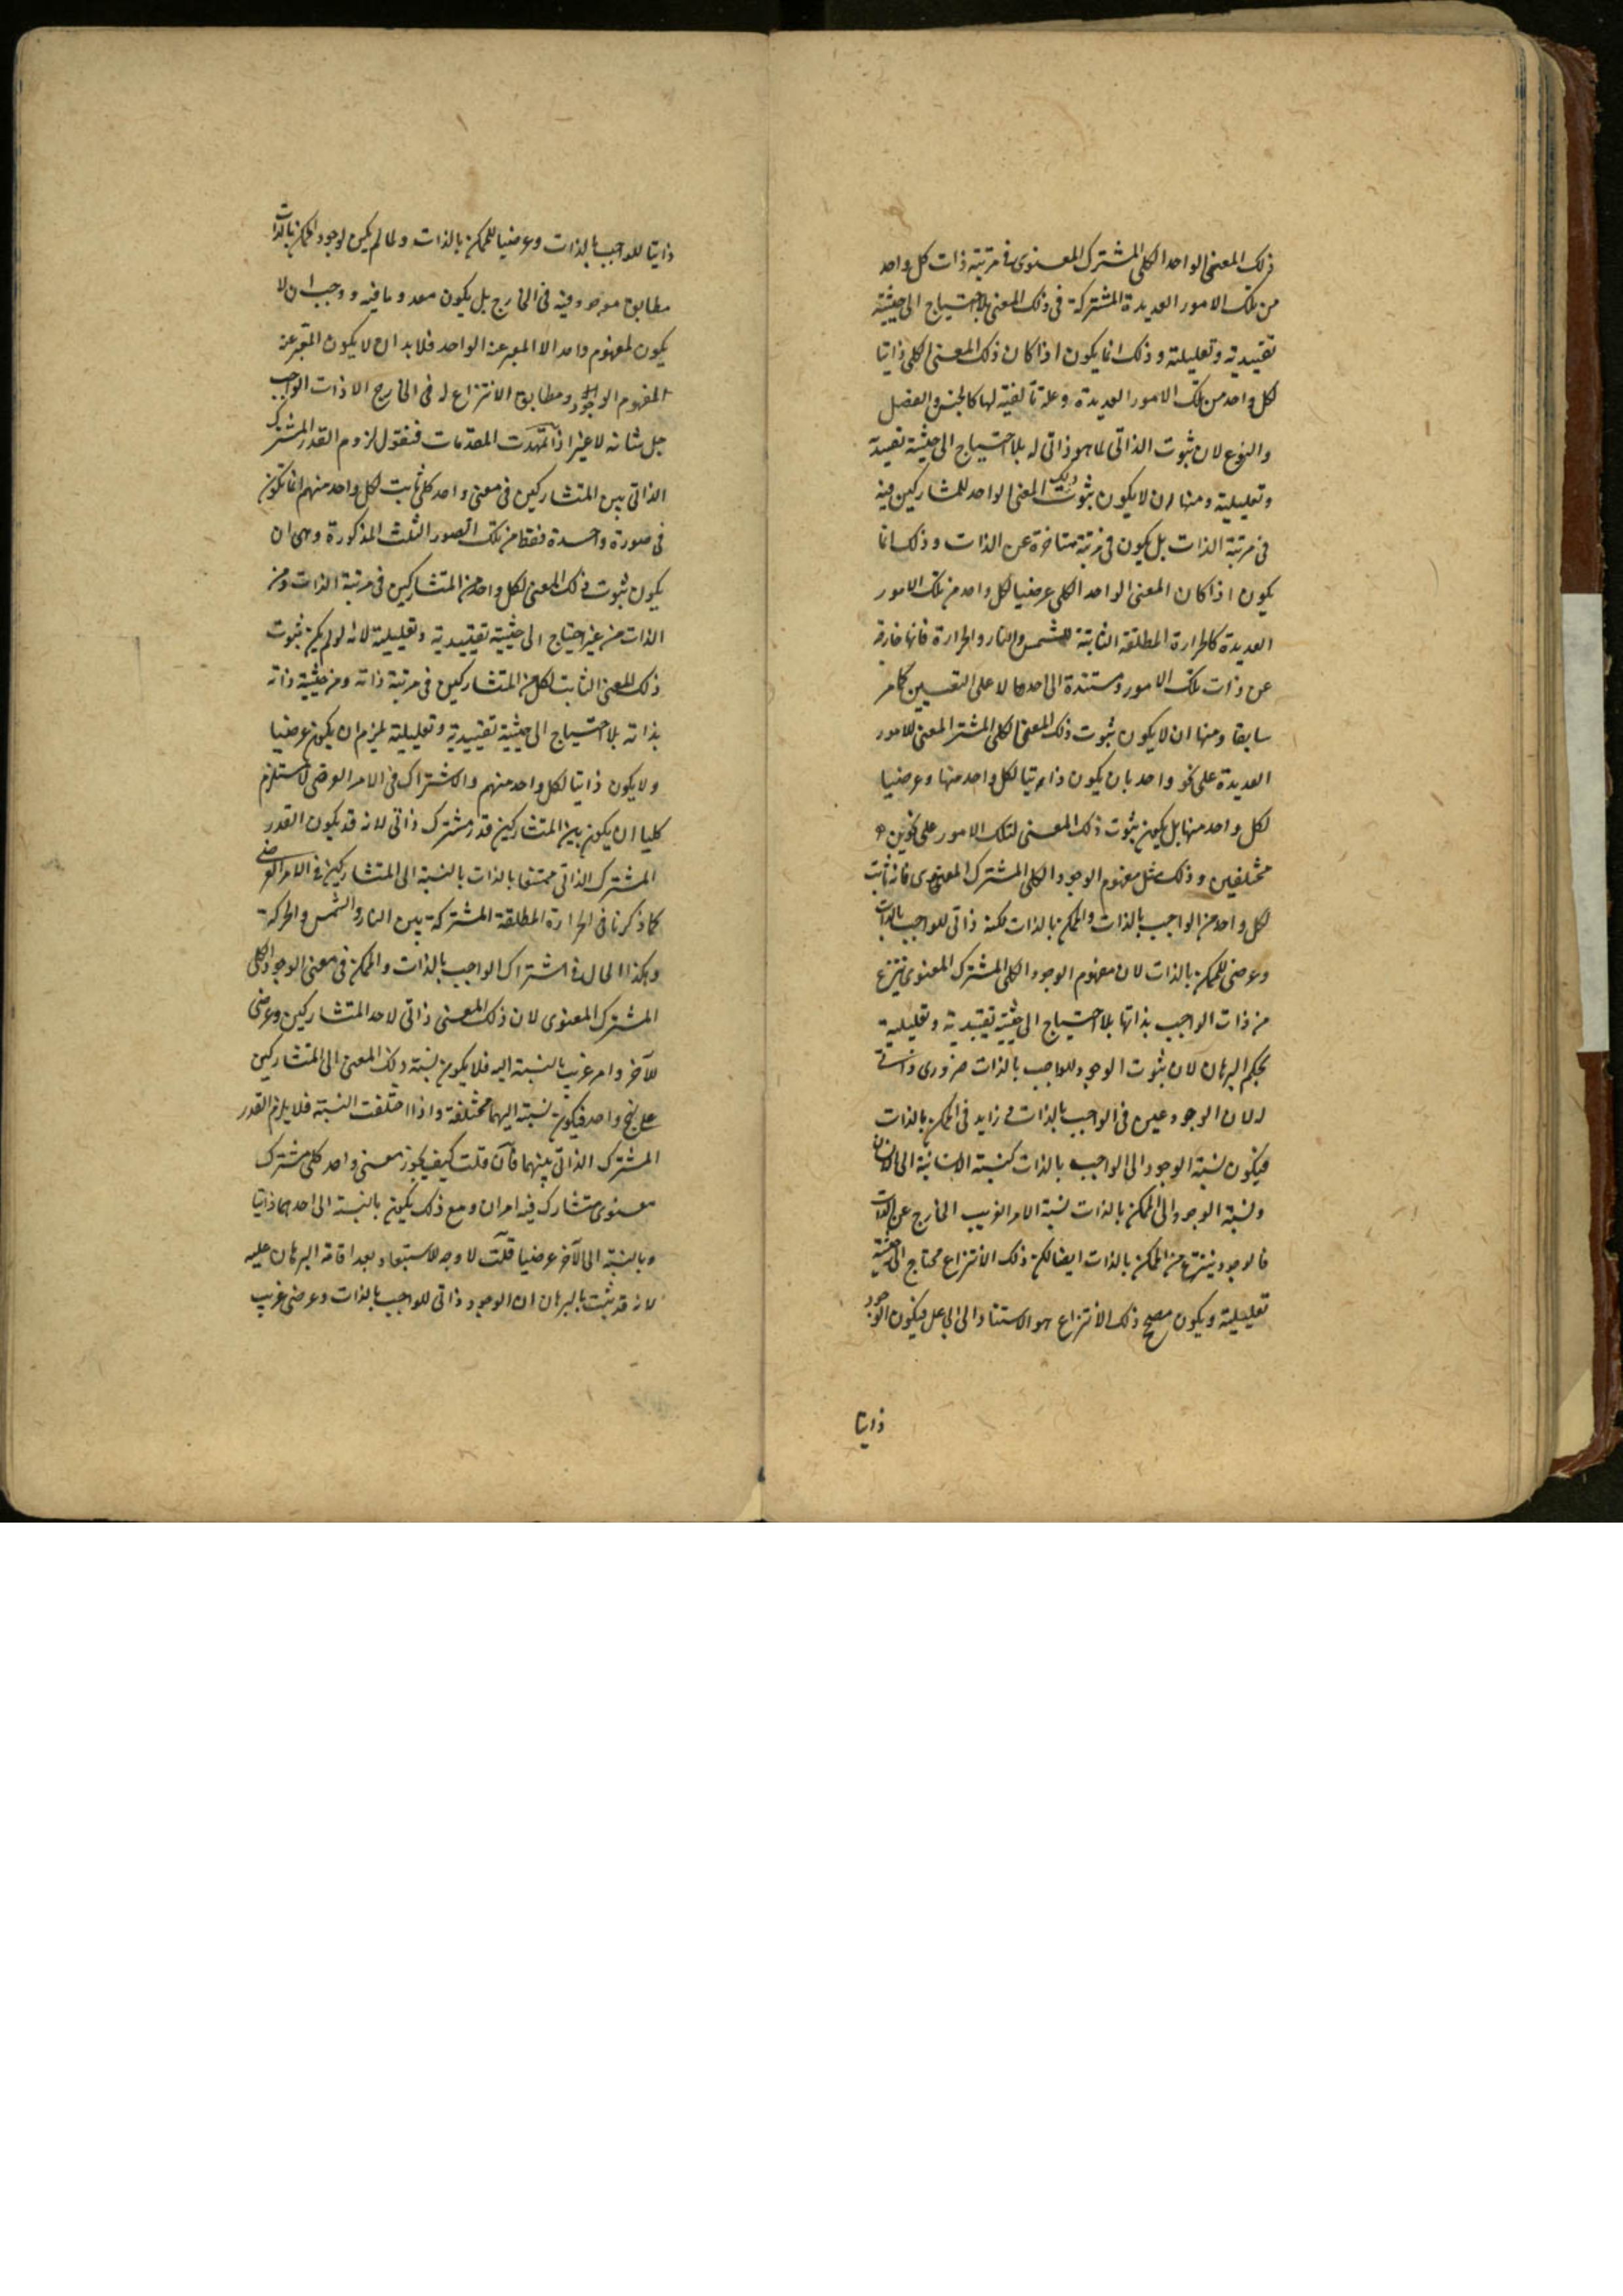 ذلك المعنى الواحد الكلى المشترك المعنوى فى مرتبة ذات كل واحد
من تلك الامور العديدة المشتركة فى ذلك المعنى بلا احتياج الى حيثية
تقييدية وتعليلية وذلك انما يكون اذا كان ذلك المعنى الكلى ذاتيا
لكل واحد من تلك الامور العديدة وعلة تألفية لها كالجنس والفصل
والنوع لان ثبوت الذاتى لما هو ذاتى له بلا احتياج الى حيثية تقييدية
وتعليلية ومنها ان لا يكون ثبوت ذلك المعنى الواحد للمتشاركين فيه
فى مرتبة الذات بل يكون فى مرتبة متاخرة عن الذات وذلك انما
يكون اذا كان المعنى الواحد الكلى عرضيا لكل واحد من تلك الامور
العديدة كالحرارة المطلقة الثابتة للشمس والنار والحرارة فانها خارجة
عن ذات تلك الامور ومستندة الى احدها لا على التعيين كما مر
سابقا ومنها ان لا يكون ثبوت ذلك المعنى الكلى المشترك المعنى للامور
العديدة على نحو واحد بان يكون ذاتيا لكل واحد منها وعرضيا
لكل واحد منها بل يكون ثبوت ذلك المعنى لتلك الامور على نحوين
مختلفين وذلك مثل مفهوم الوجود الكلى المشترك المعنوى فانه ثابت
لكل واحد من الواجب بالذات والممكن بالذات لكنه ذاتى للواجب بالذات
وعرضى للممكن بالذات لان مفهوم الوجود الكلى المشترك المعنوى ينتزع
من ذات الواجب بذاتها بلا احتياج الى حيثية تقييدية وتعليلية
بحكم البرهان لان ثبوت الوجود للواجب بالذات ضرورى وذاتى
له لان الوجود عين فى الواجب بالذات و زايد فى الممكن بالذات
فيكون نسبة الوجود الى الواجب بالذات كنسبة الانسانية الى الانسان
ونسبة الوجود الى الممكن بالذات نسبة الامر الغريب الخارج عن الذات
فالوجود ينتزع من الممكن بالذات ايضا لكن ذلك الانتزاع محتاج الى حيثية
تعليلية ويكون مصحح ذلك الانتزاع هو الاستناد الى الجاعل فيكون الوجود
ذاتيا
ذاتيا للواجب بالذات وعرضيا للممكن بالذات ولما لم يكن لوجود الممكن بالذات
مطابق موجود فيه فى الخارج بل يكون معدوما فيه ووجب ان لا
يكون لمفهوم واحد الا المعبر عنه الواحد فلابد ان لا يكون المعبر عنه
لمفهوم الوجود ومطابق الانتزاع له فى الخارج الا ذات الواجب
جل شانه لا غير اذا تمهدت المقدمات فنقول لزوم القدر المشترك
الذاتى بين المتشاركين فى معنى واحد كلى ثابت لكل واحد منهم انما تكون
فى صورة واحدة فقط من تلك الصور الثلث المذكورة وهى ان
يكون ثبوت ذلك المعنى لكل واحد من المتشاركين فى مرتبة الذات ومن
الذات من غير احتياج الى حيثية تقييدية وتعليلية لانه لو لم يكن ثبوت
ذلك المعنى الثابت لكل من المتشاركين فى مرتبة ذاته ومن حيثية ذاته
بذاته بلا احتياج الى حيثية تقييدية وتعليلية يلزم ان يكون عرضيا
ولا يكون ذاتيا لكل واحد منهم والاشتراك فى الامر العرضى لا يستلزم
كليا ان يكون بين المتشاركين قدر مشترك ذاتى لانه قد يكون القدر
المشترك الذاتى ممتنعا بالذات بالنسبة الى المتشاركين فى الامر العرضى
كما ذكرنا فى الحرارة المطلقة المشتركة بين النار والشمس والحركة
وهكذا الحال فى اشتراك الواجب بالذات والممكن فى معنى الوجود الكلى
المشترك المعنوى لان ذلك المعنى ذاتى لاحد المتشاركين وعرضى
للآخر وامر غريب بالنسبة اليه فلا يكون نسبة ذلك المعنى الى المتشاركين
على نهج واحد فيكون نسبته اليهما مختلفة واذا اختلفت النسبة فلا يلزم القدر
المشترك الذاتى بينهما فان قلت كيف يجوز معنى واحد كلى مشترك
معنوى متشارك فيه امران ومع ذلك يكون بالنسبة الى احدهما ذاتيا
وبالنسبة الى الآخر عرضيا قلت لا وجه للاستبعاد بعد اقامة البرهان عليه
لانه قد ثبت بالبرهان ان الوجود ذاتى للواجب بالذات وعرضى غريب